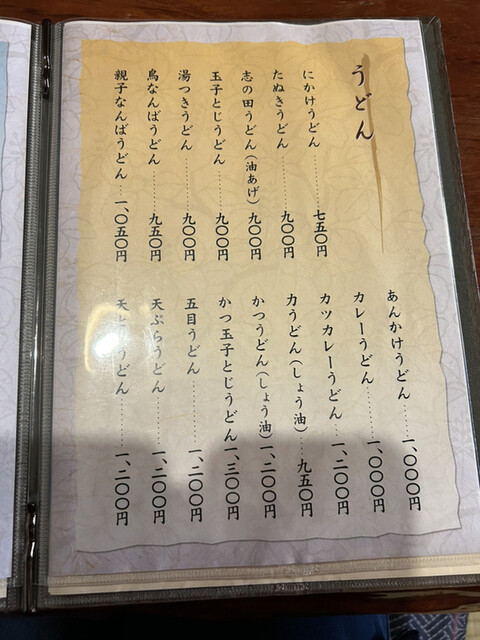 うどん
にかけうどん……七五〇円
たぬきうどん……九〇〇円
志の田うどん(油あげ)九〇〇円
玉子とじうどん……九〇〇円
湯つきうどん……九〇〇円
鳥なんばうどん……九五〇円
親子なんばうどん…一、〇五〇円
あんかけうどん……一、〇〇〇円
カレーうどん……一、〇〇〇円
カツカレーうどん…一、二〇〇円
力うどん(しょう油)…九五〇円
かつうどん(しょう油)一、二〇〇円
かつ玉子とじうどん一、三〇〇円
五目うどん……一、二〇〇円
天ぷらうどん……一、二〇〇円
天と うどん……一、二〇〇円